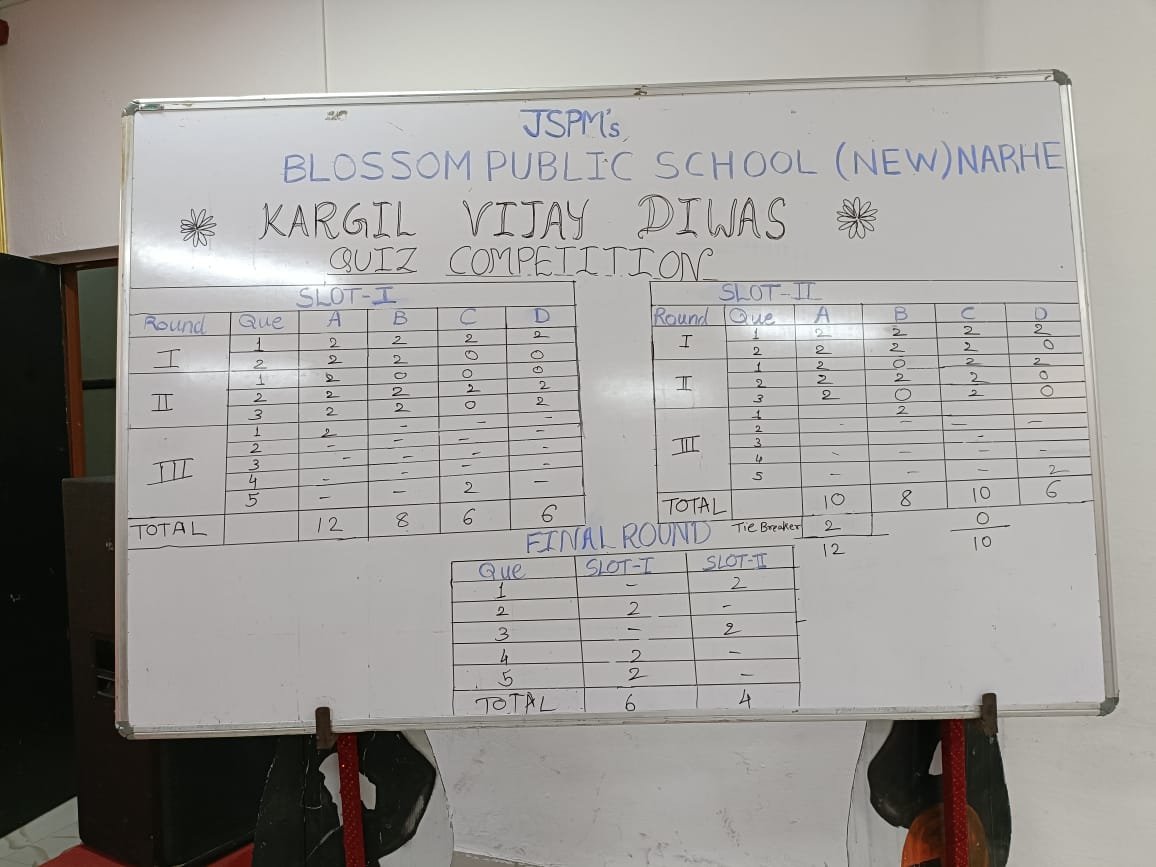 JSPM's
BLOSSOM PUBLIC SCHOOL (NEW) NARHE
KARGIL VIJAY DIWAS
QUIZ COMPETITION
SLOT-I
Round Que A B C D
I 1 2 2 2 2
2 2 2 0 0
II 1 2 0 0 0
2 2 2 2 2
3 2 2 0 2
III 1 2 - - -
2 - - - -
3 - - - -
4 - - - -
5 - - 2 -
TOTAL 12 8 6 6
SLOT-II
Round Que A B C D
I 1 2 2 2 2
2 2 2 2 0
II 1 2 0 2 2
2 2 2 2 0
3 2 0 2 0
III 1 2
2 - - - -
3 -
4 - - - -
5 - - - 2
TOTAL 10 8 10 6
Tie Breaker 2 0
12 10
FINAL ROUND
Que SLOT-I SLOT-II
1 - 2
2 2 -
3 - 2
4 2 -
5 2 -
TOTAL 6 4